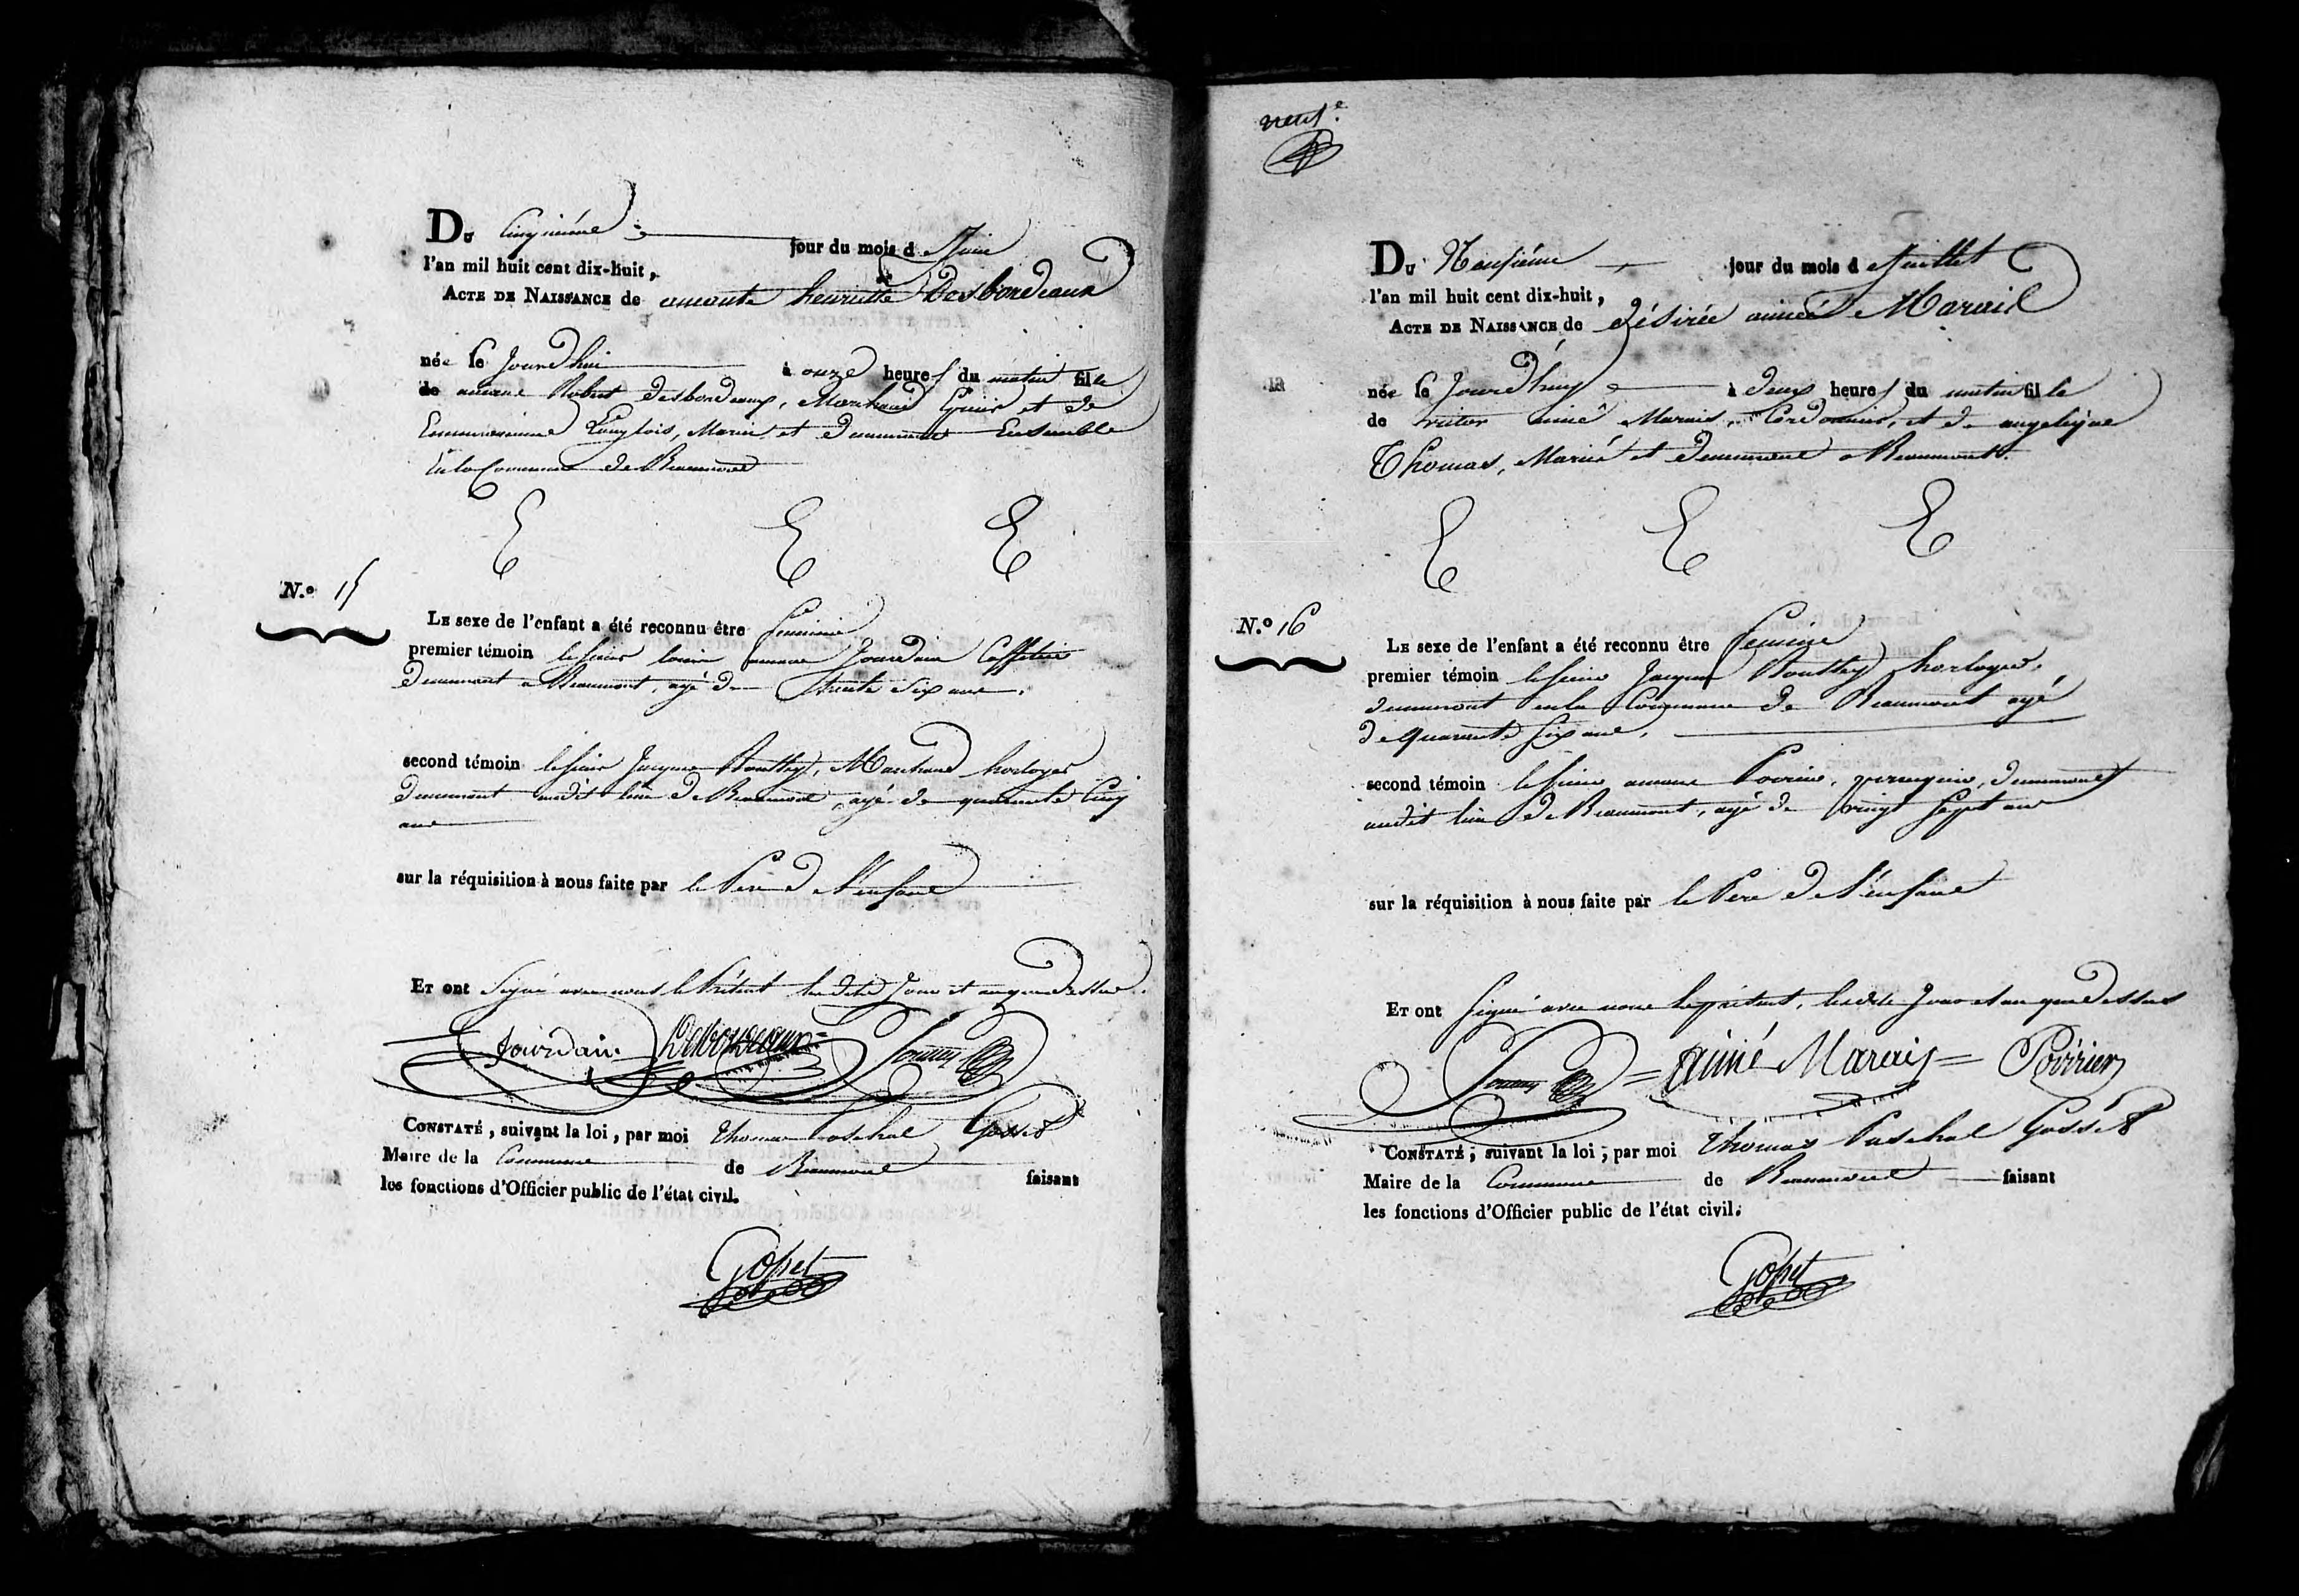 Du Cinquième jour du mois d Juin
l'an mil huit cent dix-huit,
ACTE DE NAISSANCE de amante henriette Desbordeaux
née le Jourdhui à onze heures du matin fille
de amane Robert Desbordeaux, Marchand Epicier et de
Langlois, Mariés et demeurant Ensemble
En la Commune de Beaumont
N.º 15
LE sexe de l'enfant a été reconnu être féminin
premier témoin le sieur louis amane Jourdain Caffetier
demeurant a Beaumont, agé de trente Six ans,
second témoin le sieur Jacques Bouttey, Marchand horloger
demeurant audit lieu de Beaumont, agé de quarante Cinq
ans
sur la réquisition à nous faite par le Père de l'enfant
ET ont Signé avec nous le Présent lesdits Jour et an que dessus.
Jourdain Desbordeaux
CONSTATÉ, suivant la loi, par moi Thomas Paschal Gosset
Maire de la Commune de Beaumont faisant
les fonctions d'Officier public de l'état civil.
Gosset
neuf.e
Du Neufième jour du mois d Juillet
l'an mil huit cent dix-huit,
ACTE DE NAISSANCE de Désirée aimée Marais
née le Jourd'huy à deux heures du matin fille
de victor aimé Marais, Cordonnier, et de angelique
Thomas, Mariés et demeurant a Beaumont.
N.º 16
LE sexe de l'enfant a été reconnu être féminin
premier témoin le sieur Jacques Bouttey horloger,
demeurant en la Commune de Beaumont agé
de quarante six ans,
second témoin le sieur amane Poirier, demeurant
audit lieu de Beaumont, agé de vingt sept ans
sur la réquisition à nous faite par le Père de l'enfant
ET ont signé avec nous le présent, lesdits Jour et an que dessus
aimé Marais Poirier
CONSTATÉ, suivant la loi, par moi Thomas Paschal Gosset
Maire de la Commune de Beaumont faisant
les fonctions d'Officier public de l'état civil.
Gosset